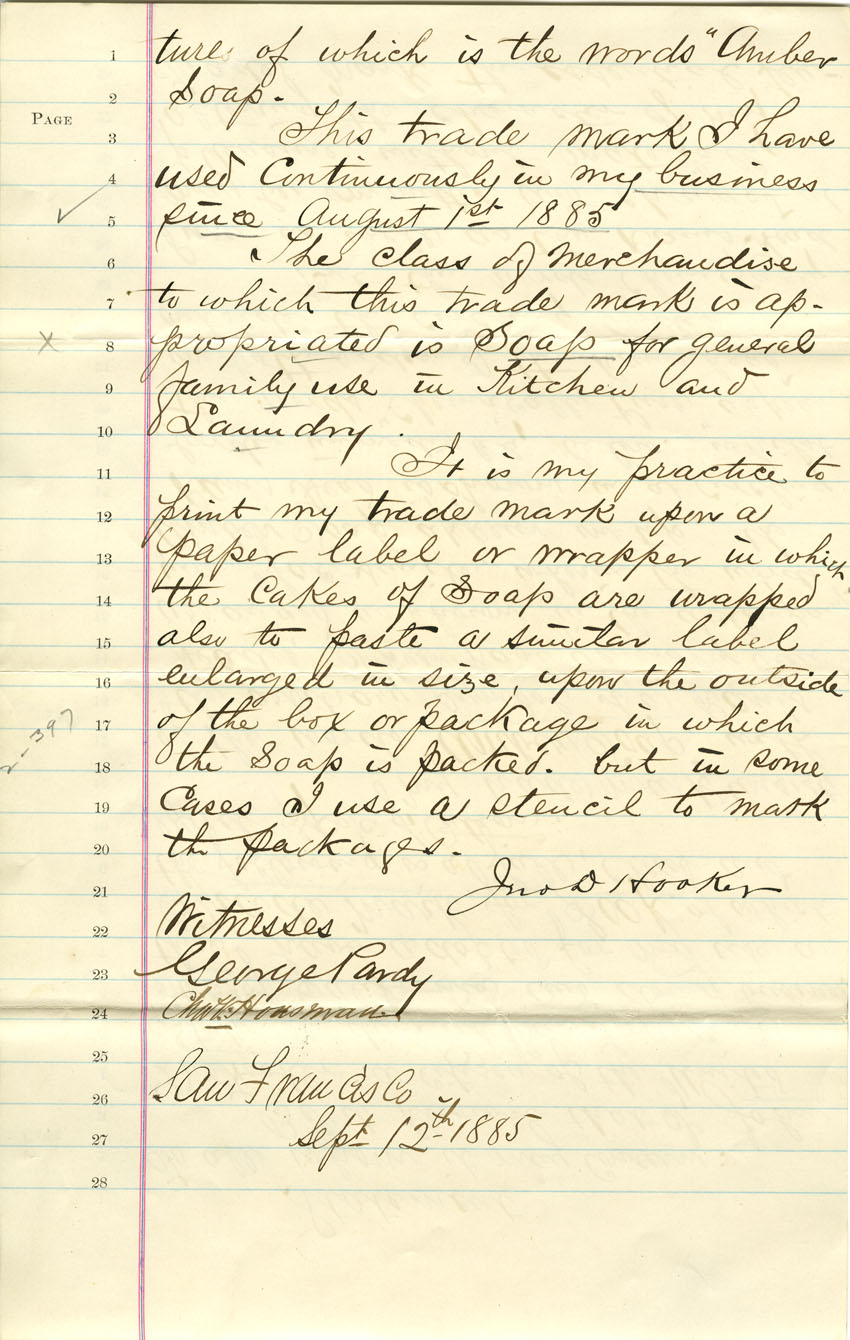 1 ture of which is the words "Amber
2 Soap.
PAGE
3 This trade mark I have
4 used Continuously in my business
5 since August 1st 1885
6 The class of Merchandise
7 to which this trade mark is ap-
8 propriated is Soap for general
9 family use in Kitchen and
10 Laundry.
11 It is my practice to
12 print my trade mark upon a
13 paper label or wrapper in which
14 the Cakes of Soap are wrapped
15 also to paste a similar label
16 enlarged in size, upon the outside
17 of the box or package in which
18 the Soap is packed. but in some
19 Cases I use a stencil to mark
20 the packages.
21 Jno D Hooker
22 Witnesses
23 George Pardy
24 Housman
25
26 San Francisco
27 Sept 12th 1885
28
2-397